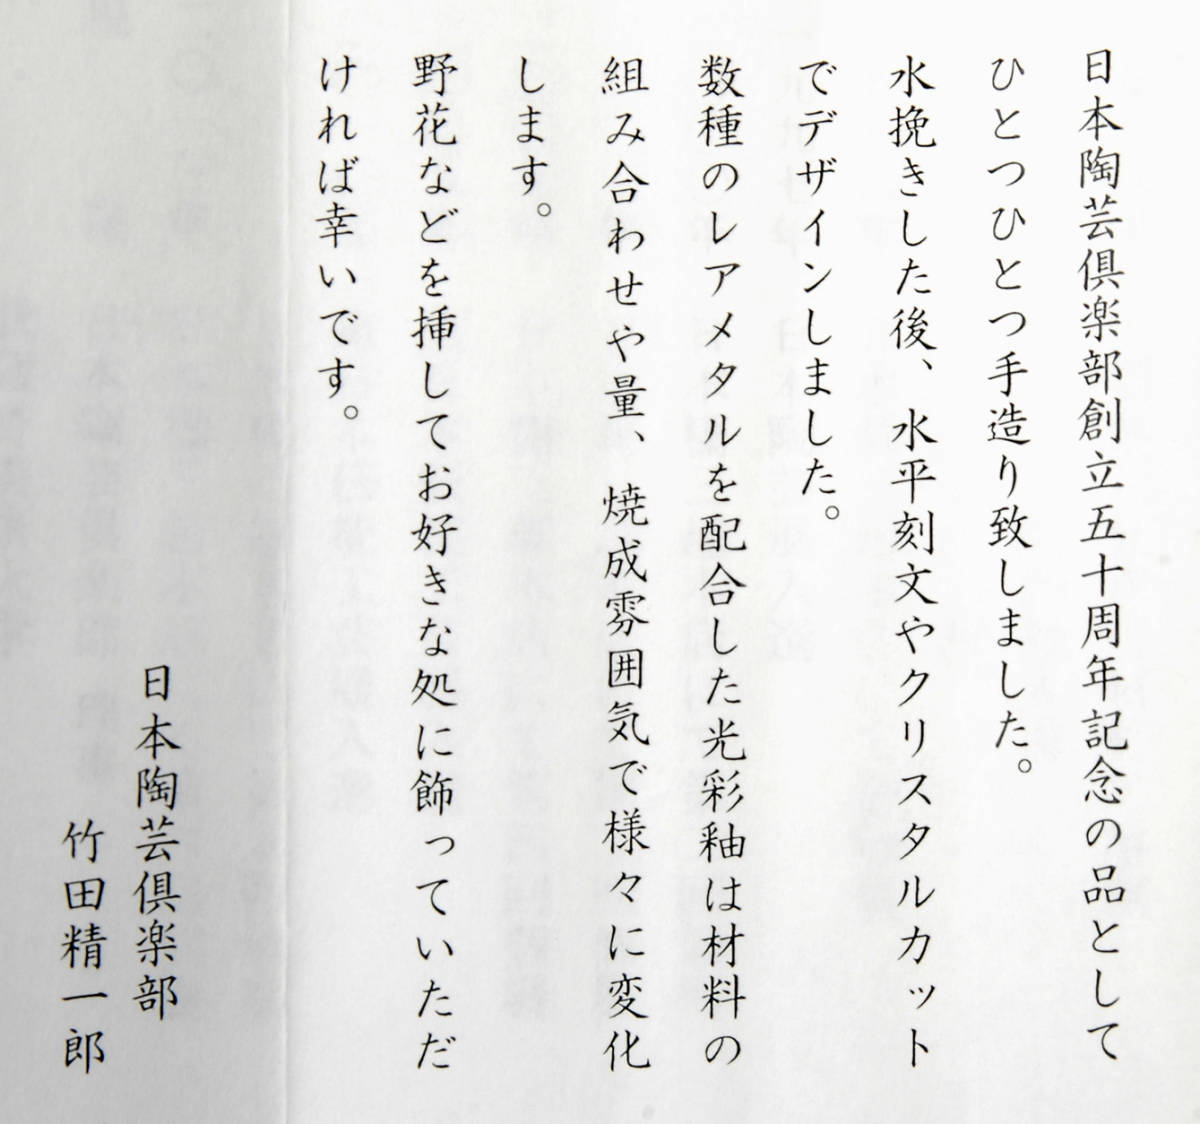 日本陶芸倶楽部創立五十周年記念の品として
ひとつひとつ手造り致しました。
水挽きした後、水平刻文やクリスタルカット
でデザインしました。
数種のレアメタルを配合した光彩釉は材料の
組み合わせや量、焼成雰囲気で様々に変化
します。
野花などを挿してお好きな処に飾っていただ
ければ幸いです。
日本陶芸倶楽部
竹田精一郎